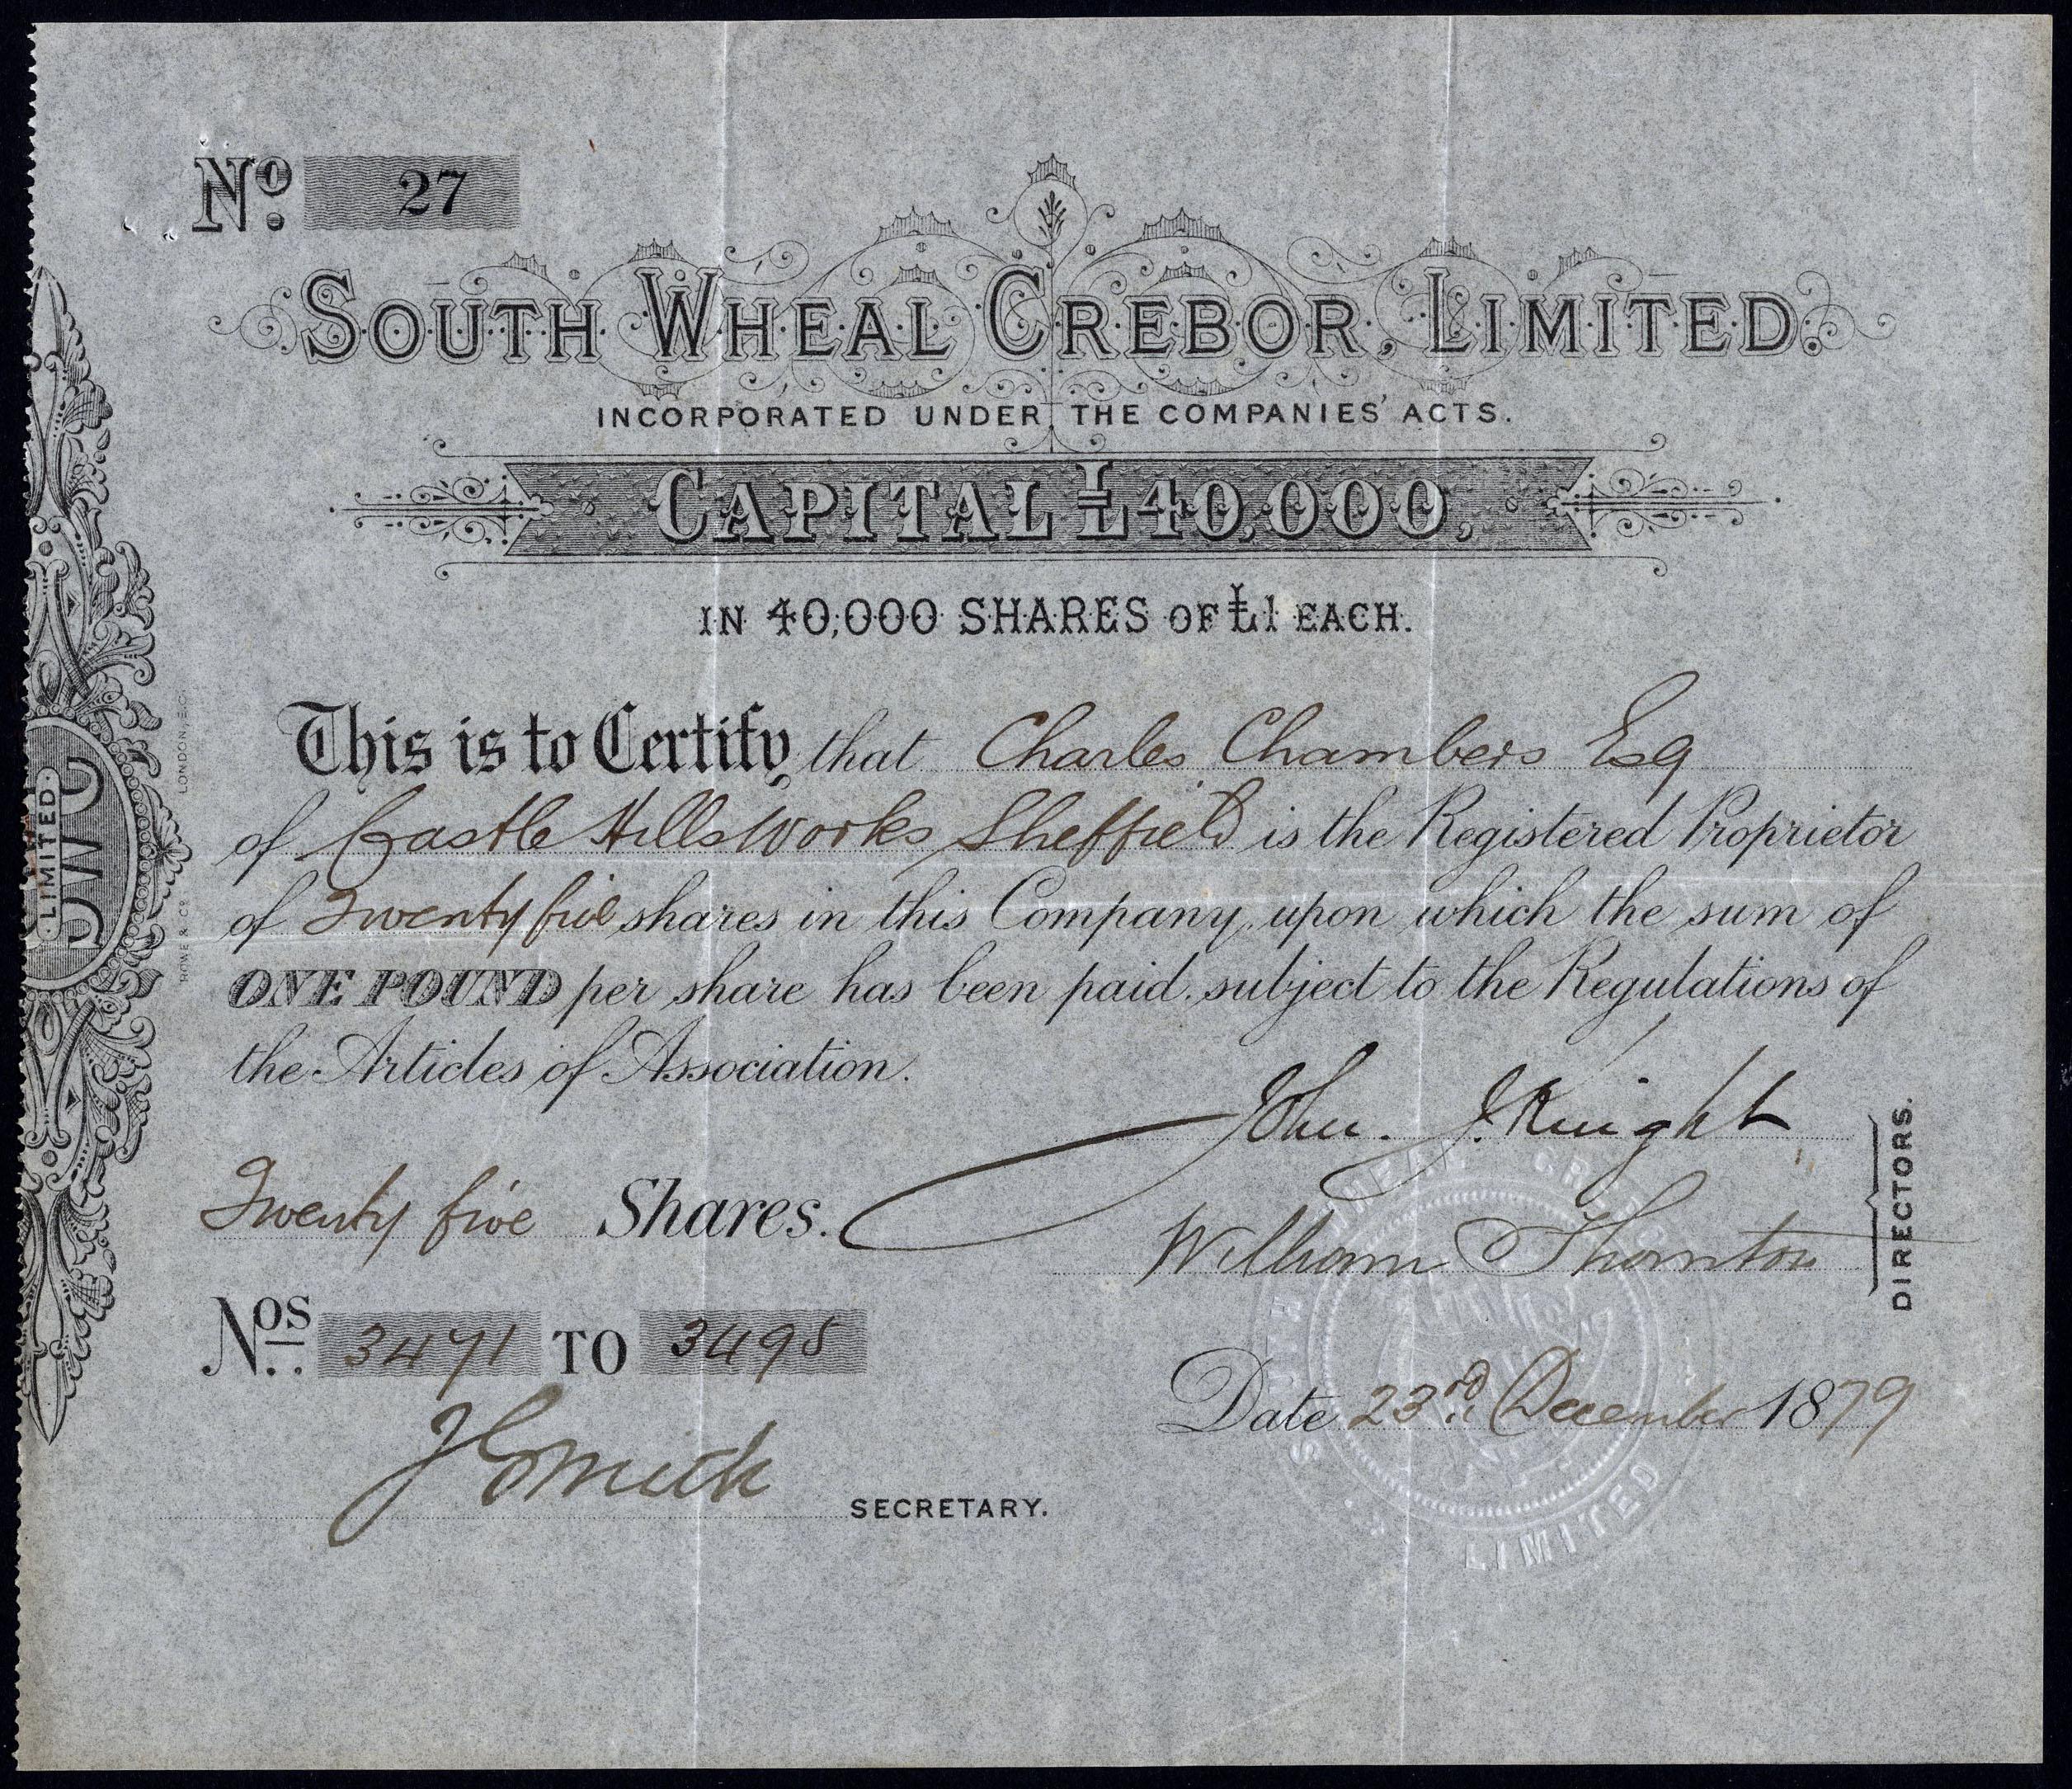 No. 27
SOUTH WHEAL CREBOR, LIMITED.
INCORPORATED UNDER THE COMPANIES' ACTS.
CAPITAL £40,000,
IN 40,000 SHARES OF £1 EACH.
This is to Certify that Charles Chambers Esq
of Castle Hills Works Sheffield is the Registered Proprietor
of Twenty five shares in this Company, upon which the sum of
ONE POUND per share has been paid, subject to the Regulations of
the Articles of Association.
John. J. Knight
Twenty five Shares.
William Thornton
DIRECTORS.
Nos. 3471 TO 3495
Date 23rd December 1879
SECRETARY.
SOUTH WHEAL CREBOR LIMITED
SWC
LIMITED
ROWE & Co LONDON, E.C.